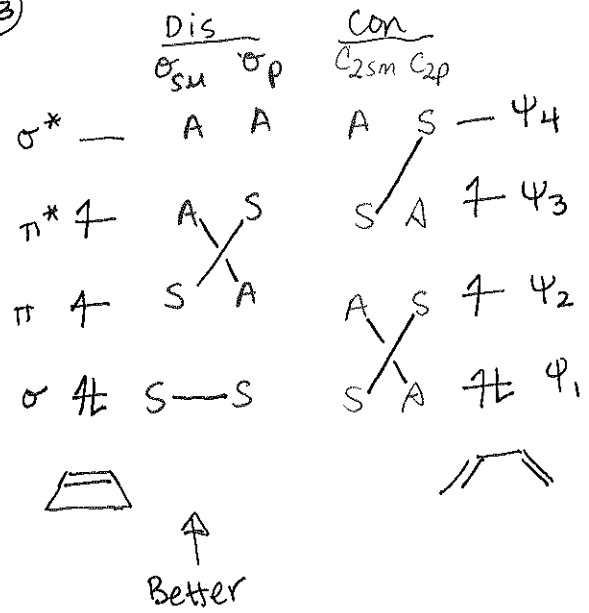 3
Dis Con
σsm σp C2sm C2p
σ* A A A S ψ4
π* A S S A ψ3
π S A A S ψ2
σ S S S A ψ1
Better